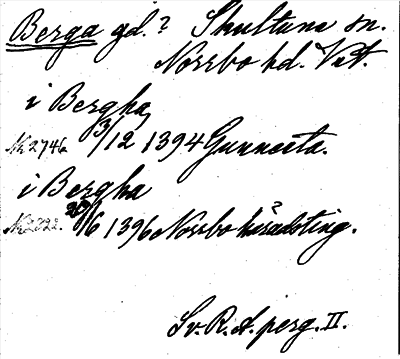 Berga gd.? Skultuna sn.
Norrbo hd. Vst.
i Bergha
Nr 2746 3/12 1394 Gunnesta.
i Bergha
/6 1396 Norrbo häradsting.
?
Sv. R. A. perg. II.